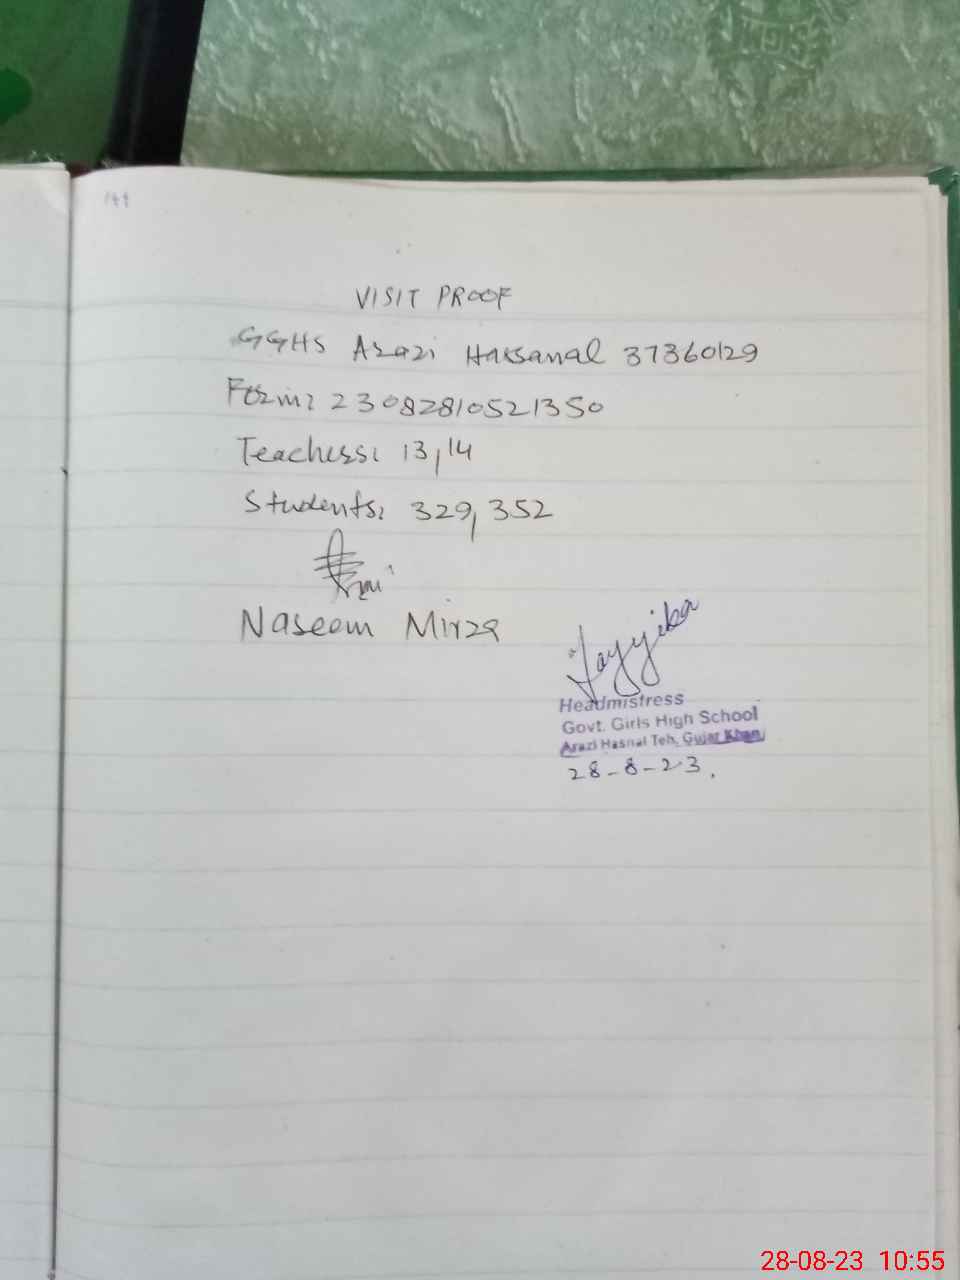 VISIT PROOF
GGHS Arazi Hassanal 37360129
Form: 23082810521350
Teachers: 13,14
Students: 329, 352
Naseem Mirza
Tayyiba
Headmistress
Govt. Girls High School
Arazi Hasnal Teh. Gujar Khan
28-8-23.
28-08-23 10:55